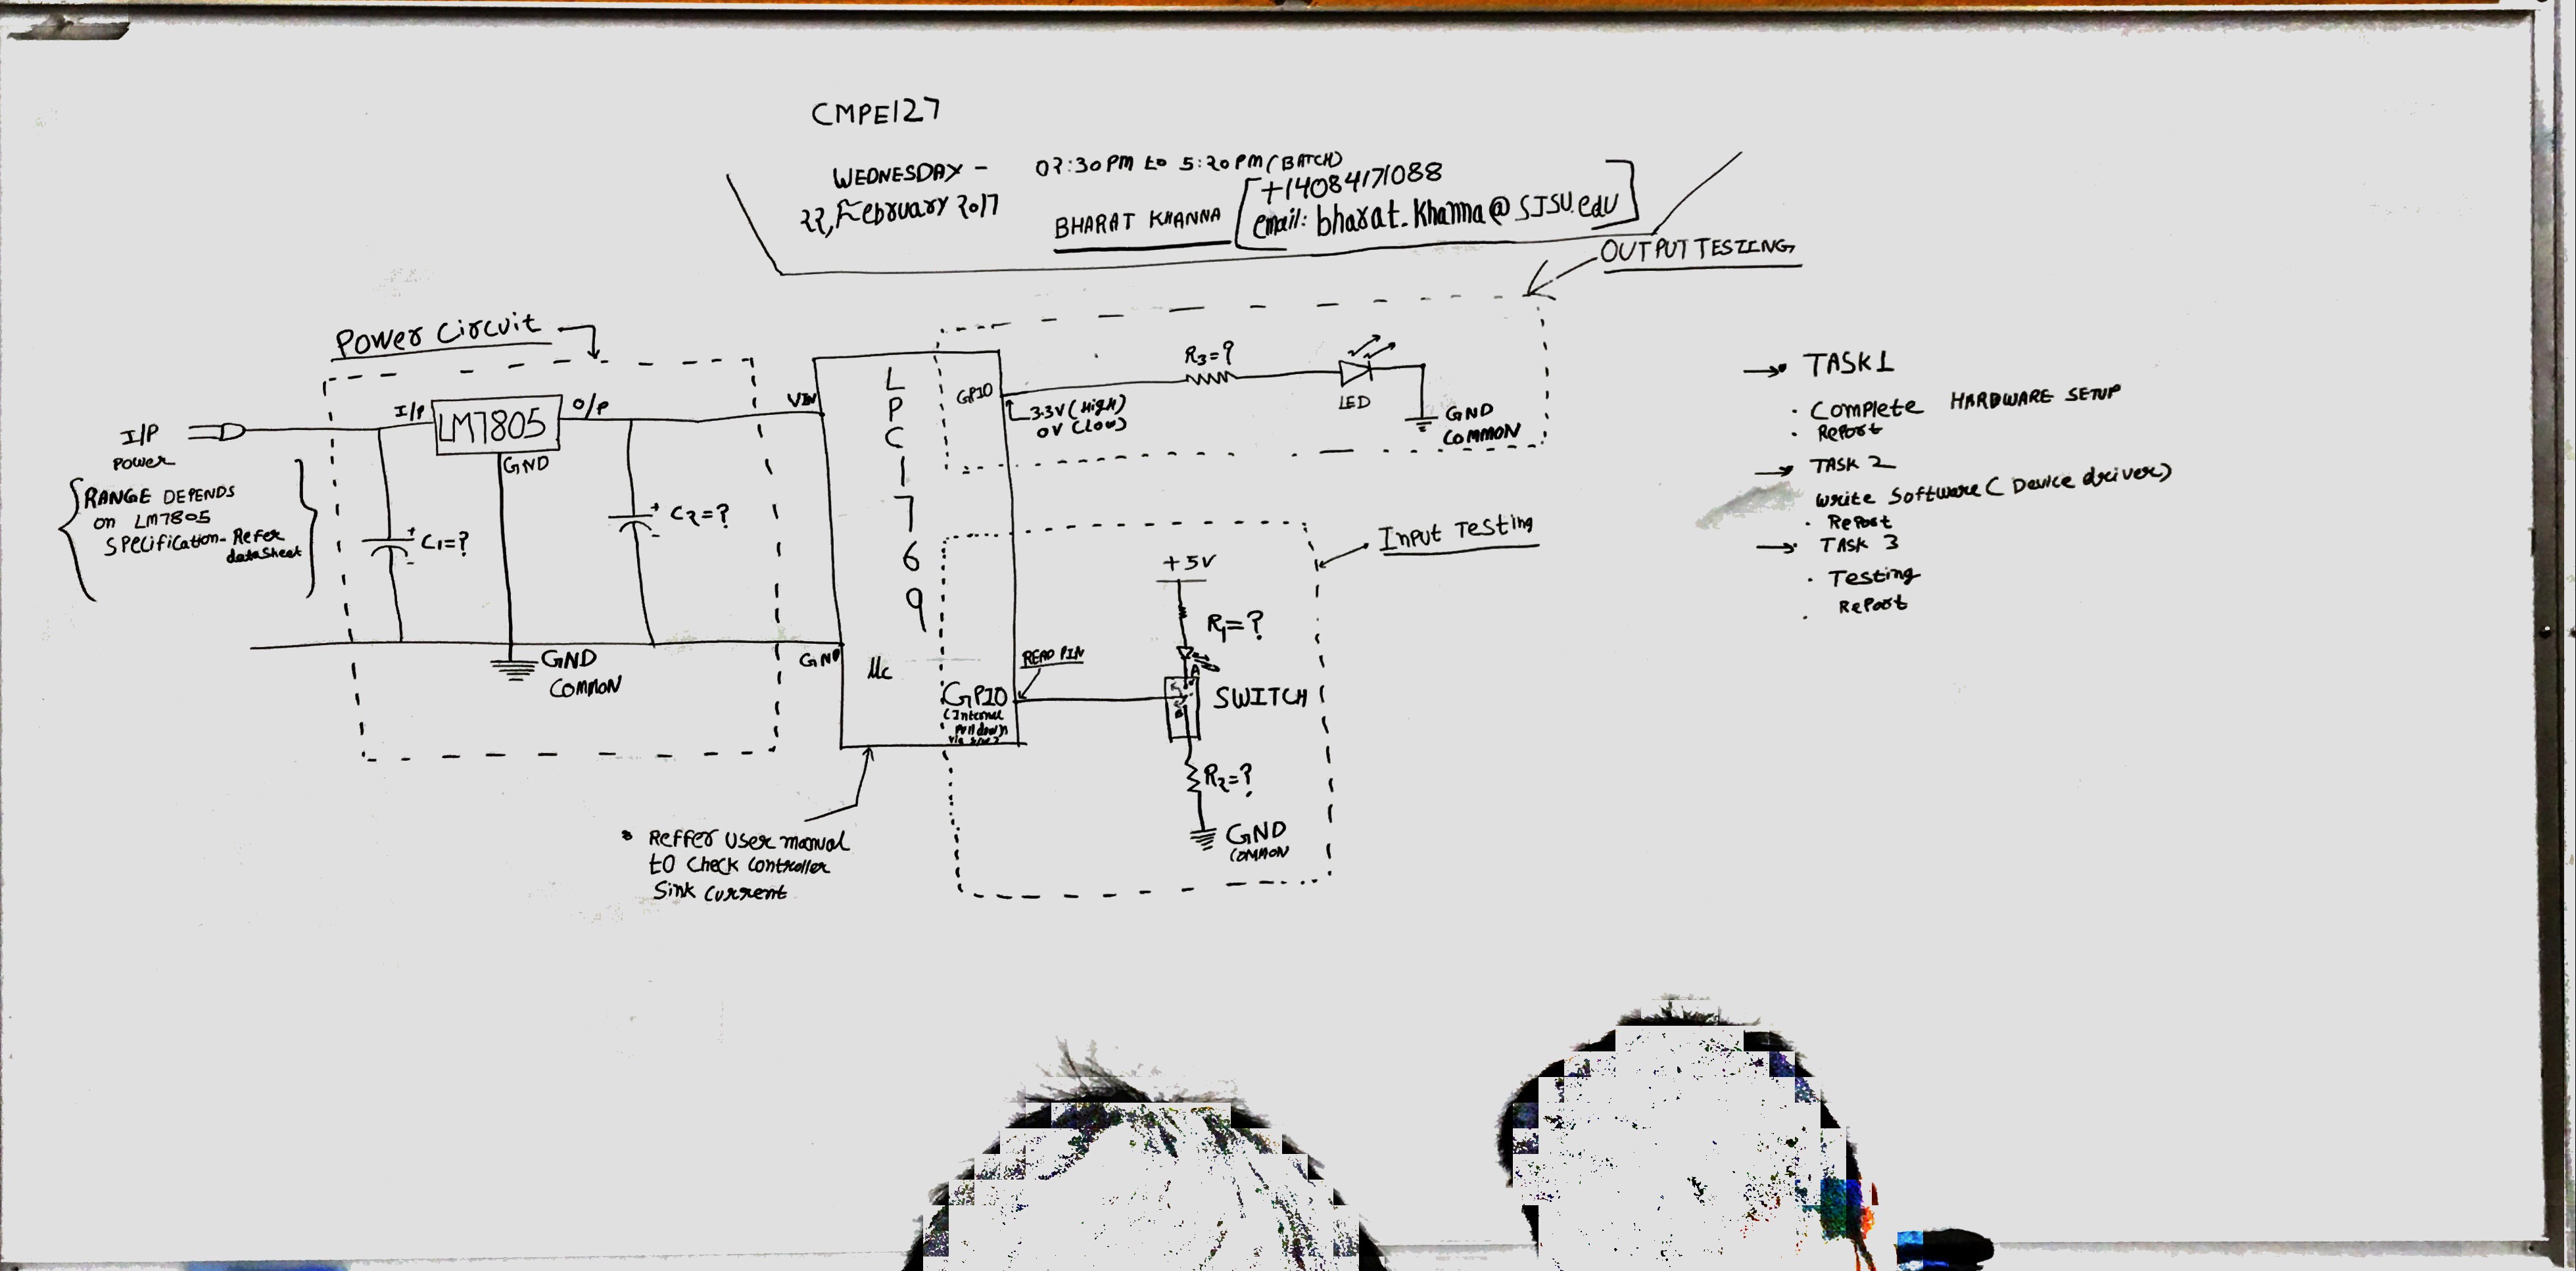 CMPE127
WEDNESDAY - 02:30PM to 5:20PM (BATCH)
22, February 2017
BHARAT KHANNA
+14084171088
email: bharat.khanna@SJSU.edu
OUTPUT TESTING
Power Circuit
I/P
Power
{RANGE DEPENDS
on LM7805
SPecification - Refer
datasheet}
I/P
LM7805
O/P
GND
C1=?
C2=?
GND
COMMON
VIN
GND
LPC1769
Mc
GPIO
3.3V (High)
0V (Low)
R3=?
LED
GND
COMMON
Input Testing
+5V
R1=?
READ PIN
GPIO
(Internal
Pull down
A
B
SWITCH
R2=?
GND
COMMON
Reffer User manual
to Check Controller
Sink Current
→ TASK1
· Complete HARDWARE SETUP
· Report
→ TASK 2
Write Software (Device driver)
· Report
→ TASK 3
· Testing
· Report